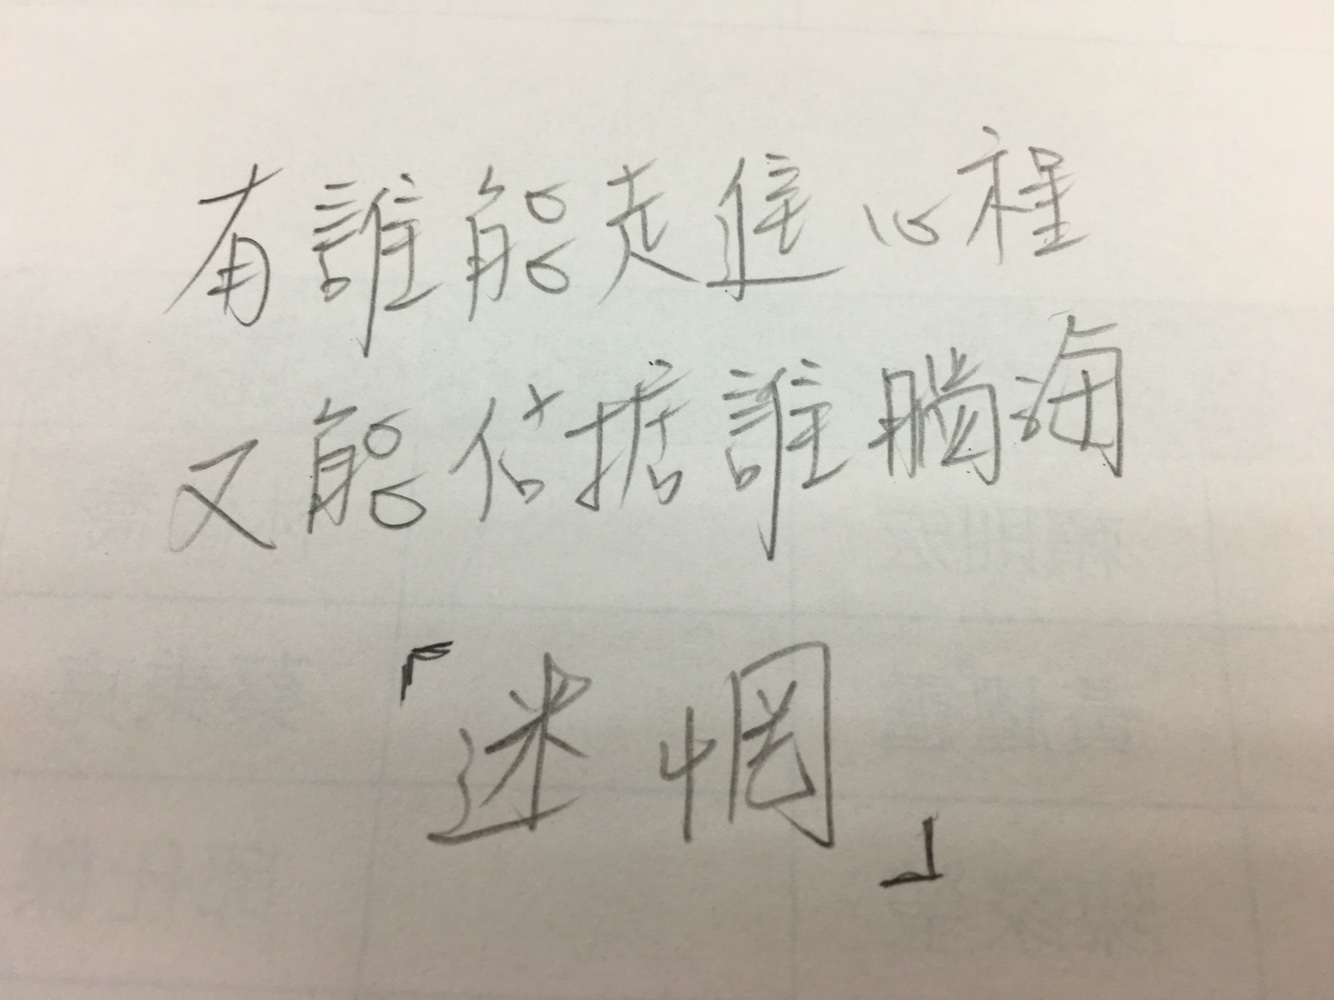 有誰能走進心裡
又能佔据誰腦海
「迷惘」